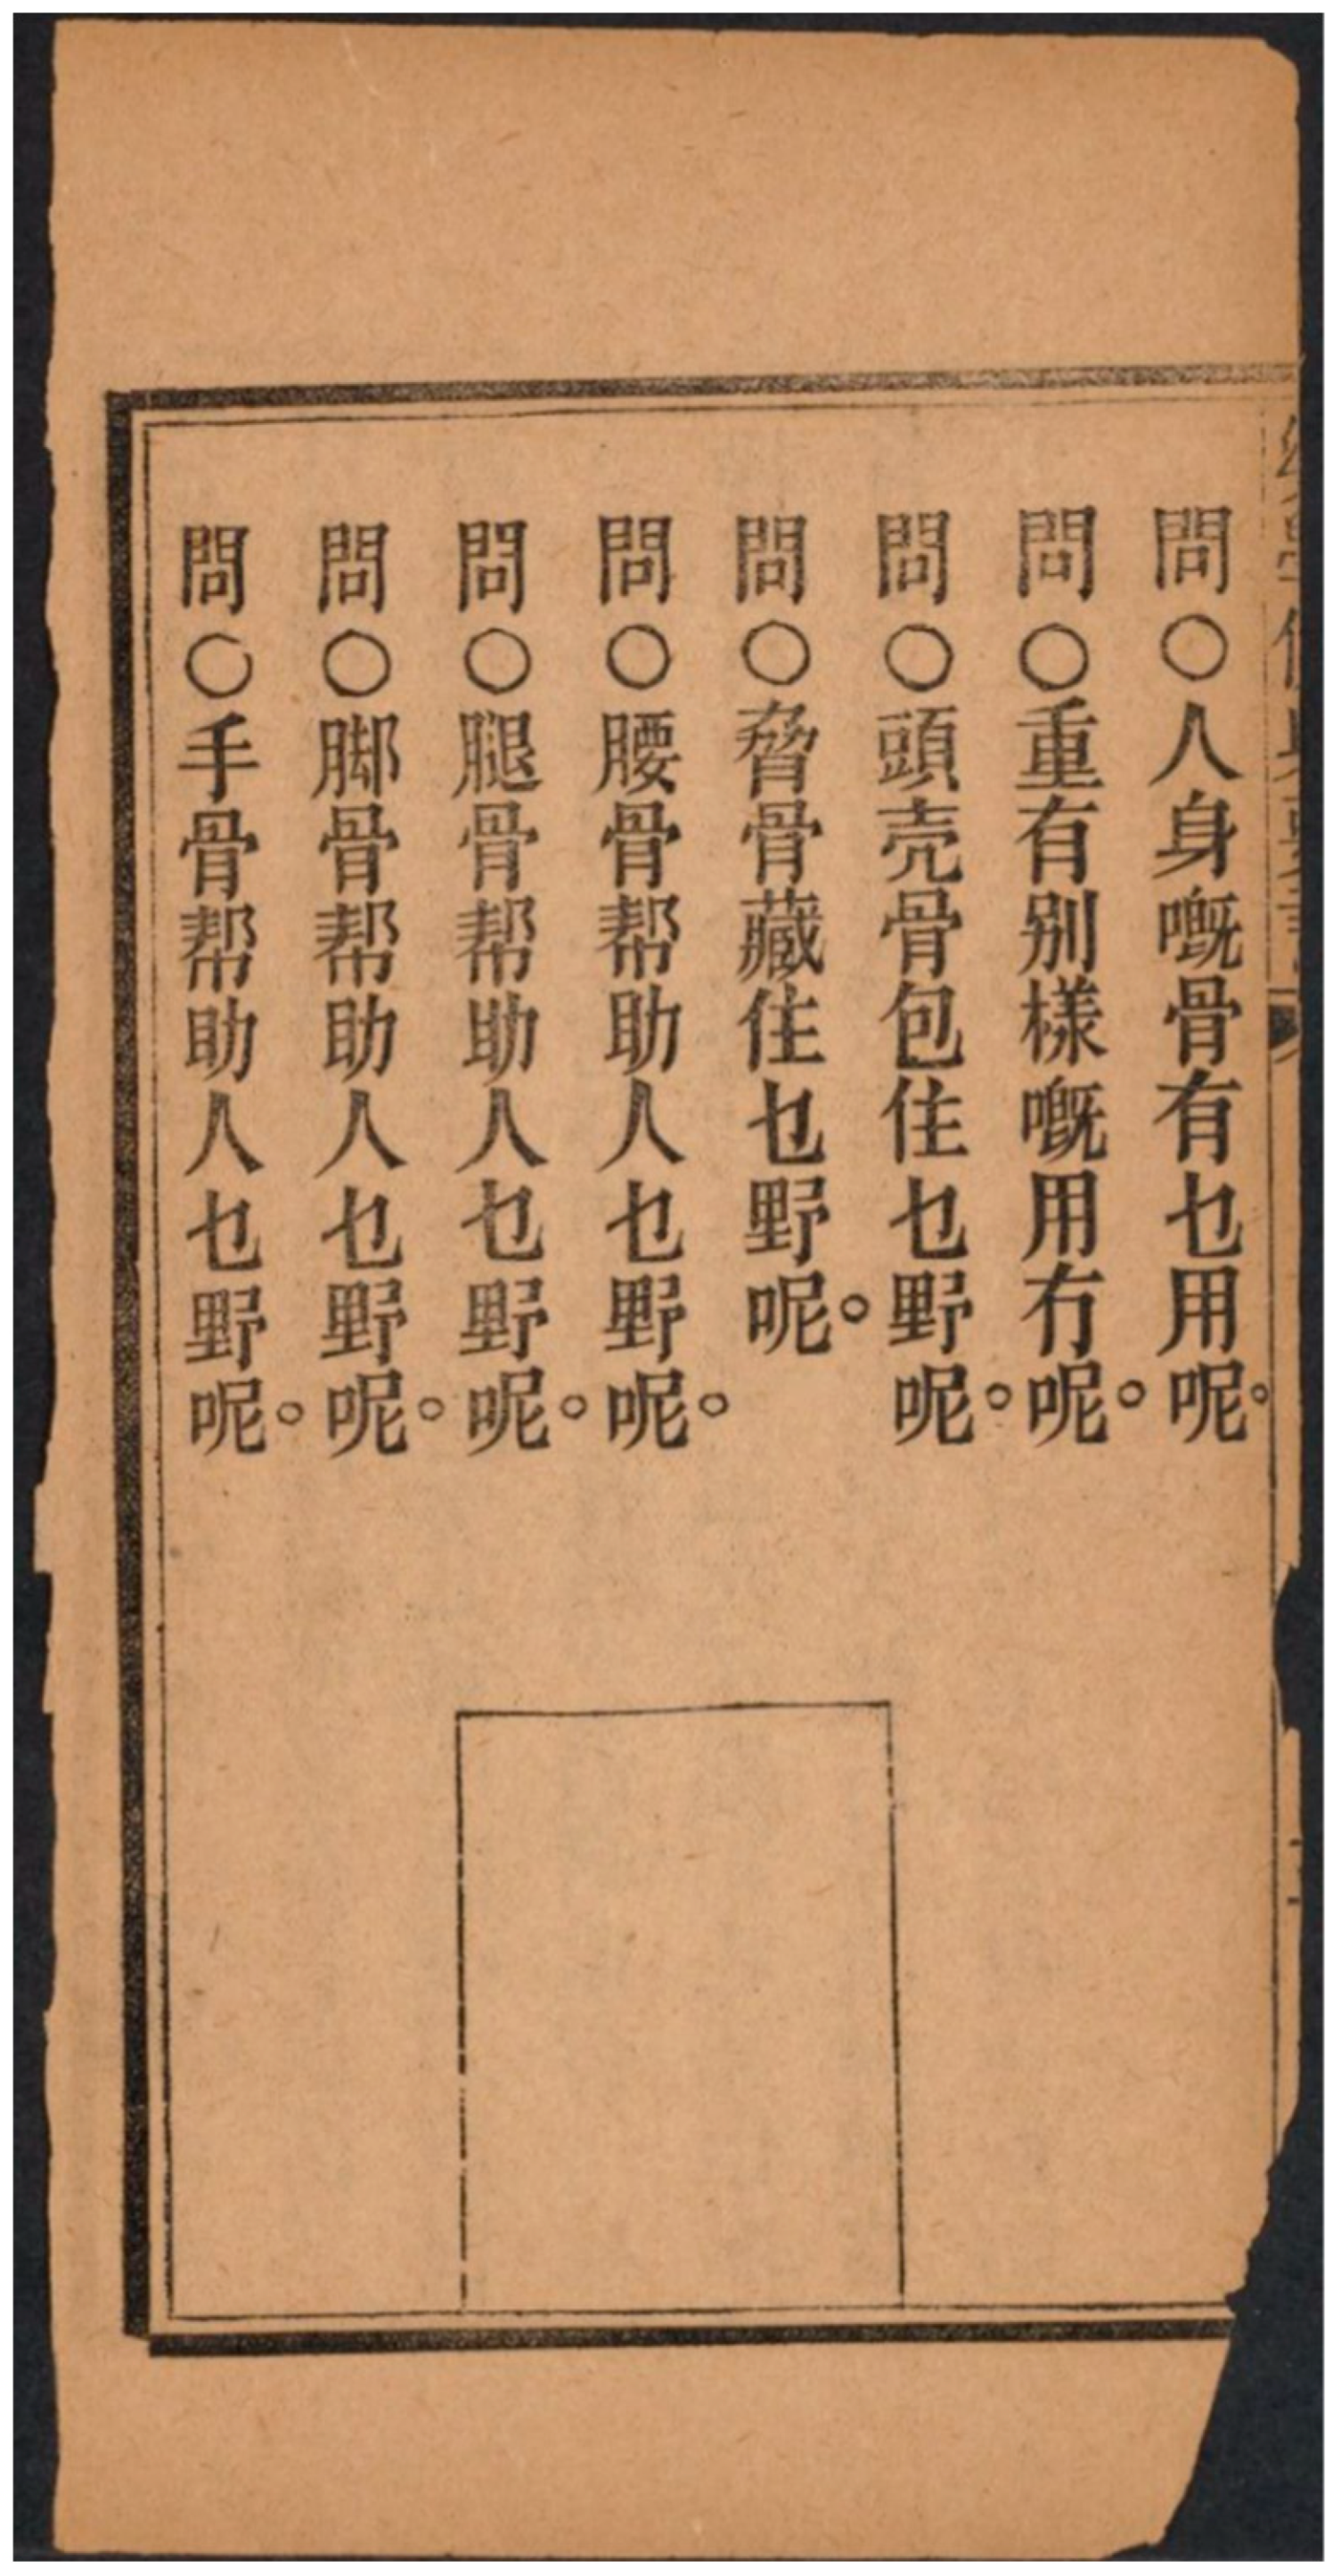 問〇人身嘅骨有乜用呢。
問〇重有別樣嘅用冇呢。
問〇頭壳骨包住乜野呢。
問〇脅骨藏住乜野呢。
問〇腰骨帮助人乜野呢。
問〇腿骨帮助人乜野呢。
問〇脚骨帮助人乜野呢。
問〇手骨帮助人乜野呢。